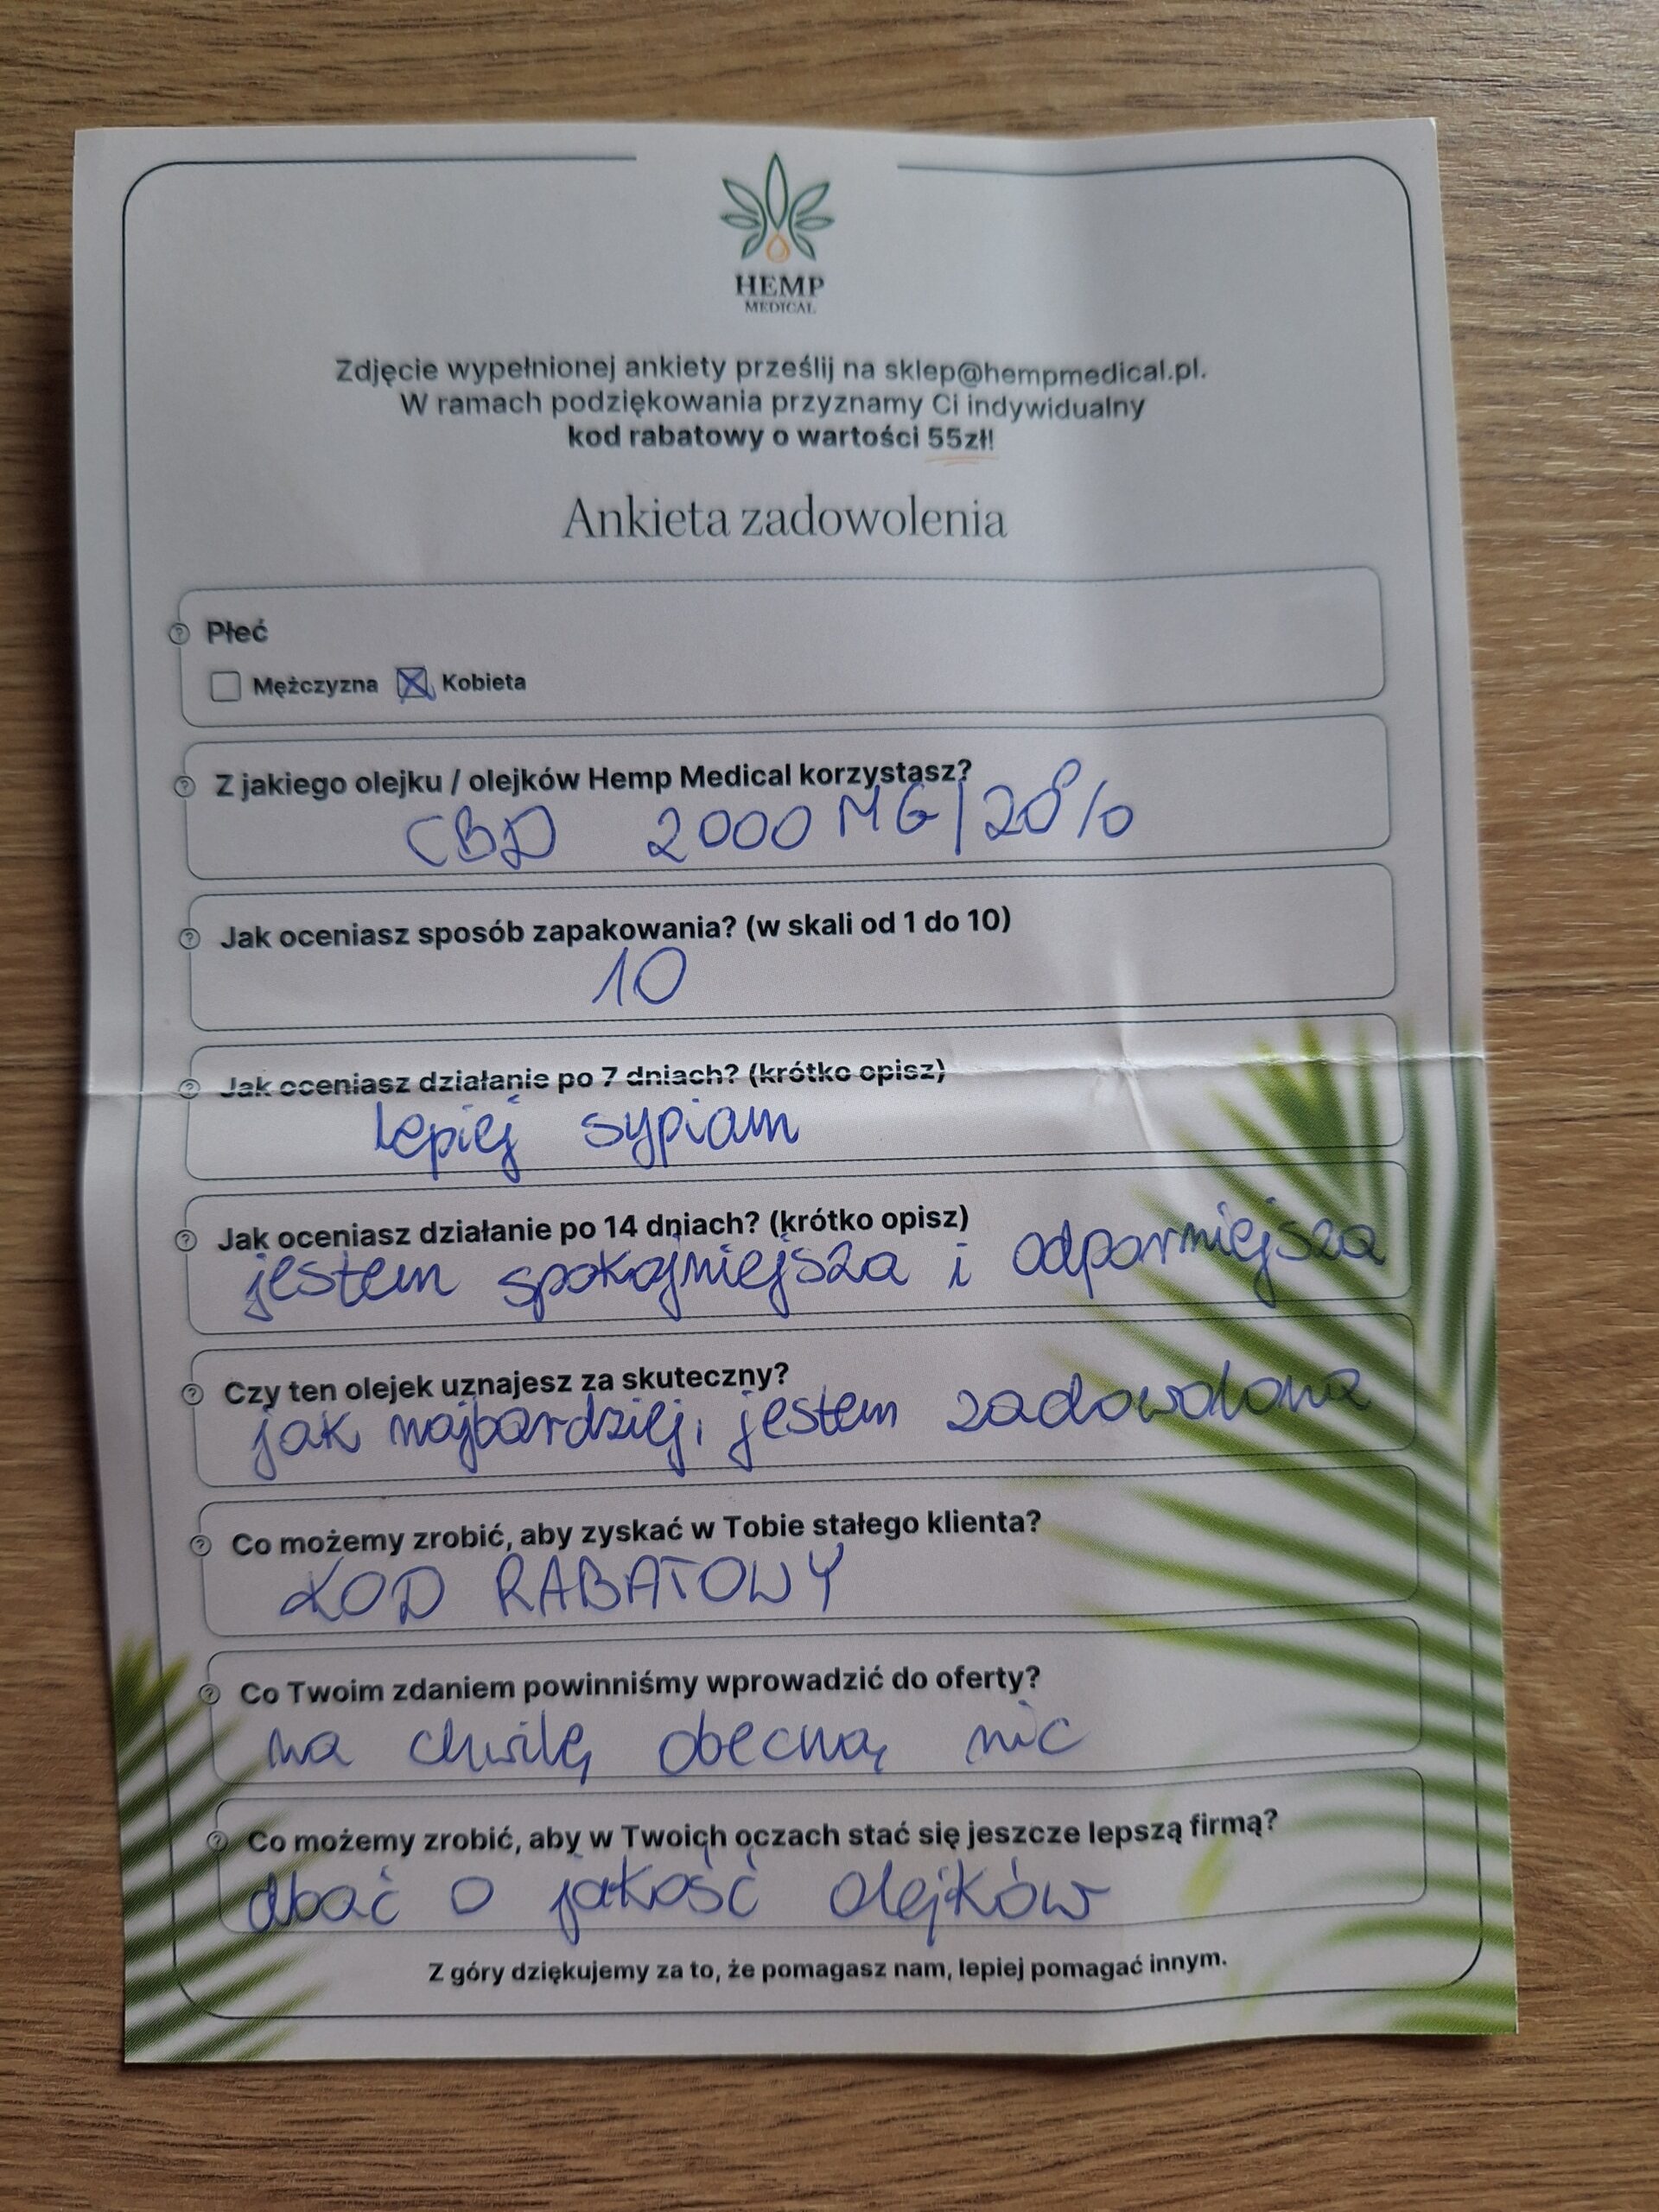 HEMP
MEDICAL
Zdjęcie wypełnionej ankiety prześlij na sklep@hempmedical.pl.
W ramach podziękowania przyznamy Ci indywidualny
kod rabatowy o wartości 55zł!
Ankieta zadowolenia
Płeć
Mężczyzna Kobieta
Z jakiego olejku / olejków Hemp Medical korzystasz?
CBD 2000 MG/20%
Jak oceniasz sposób zapakowania? (w skali od 1 do 10)
10
Jak oceniasz działanie po 7 dniach? (krótko opisz)
lepiej sypiam
Jak oceniasz działanie po 14 dniach? (krótko opisz)
jestem spokojniejsza i odporniejsza
Czy ten olejek uznajesz za skuteczny?
jak najbardziej, jestem zadowolona
Co możemy zrobić, aby zyskać w Tobie stałego klienta?
KOD RABATOWY
Co Twoim zdaniem powinniśmy wprowadzić do oferty?
na chwilę obecną nic
Co możemy zrobić, aby w Twoich oczach stać się jeszcze lepszą firmą?
dbać o jakość olejków
Z góry dziękujemy za to, że pomagasz nam, lepiej pomagać innym.